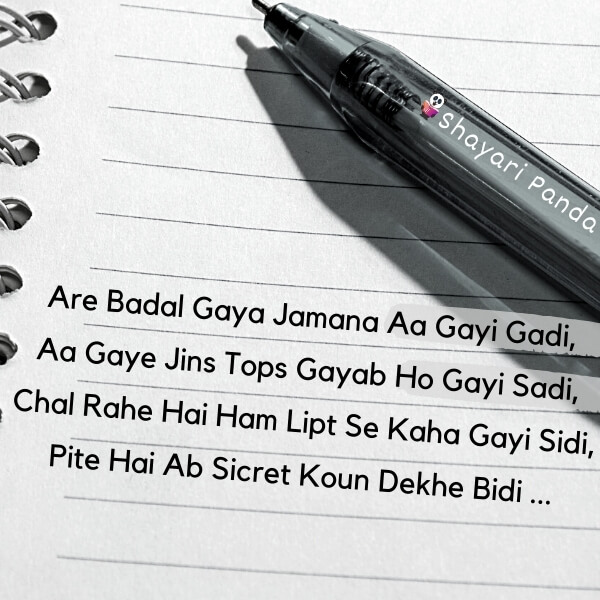 Shayari Panda
Are Badal Gaya Jamana Aa Gayi Gadi,
Aa Gaye Jins Tops Gayab Ho Gayi Sadi,
Chal Rahe Hai Ham Lipt Se Kaha Gayi Sidi,
Pite Hai Ab Sicret Koun Dekhe Bidi ...